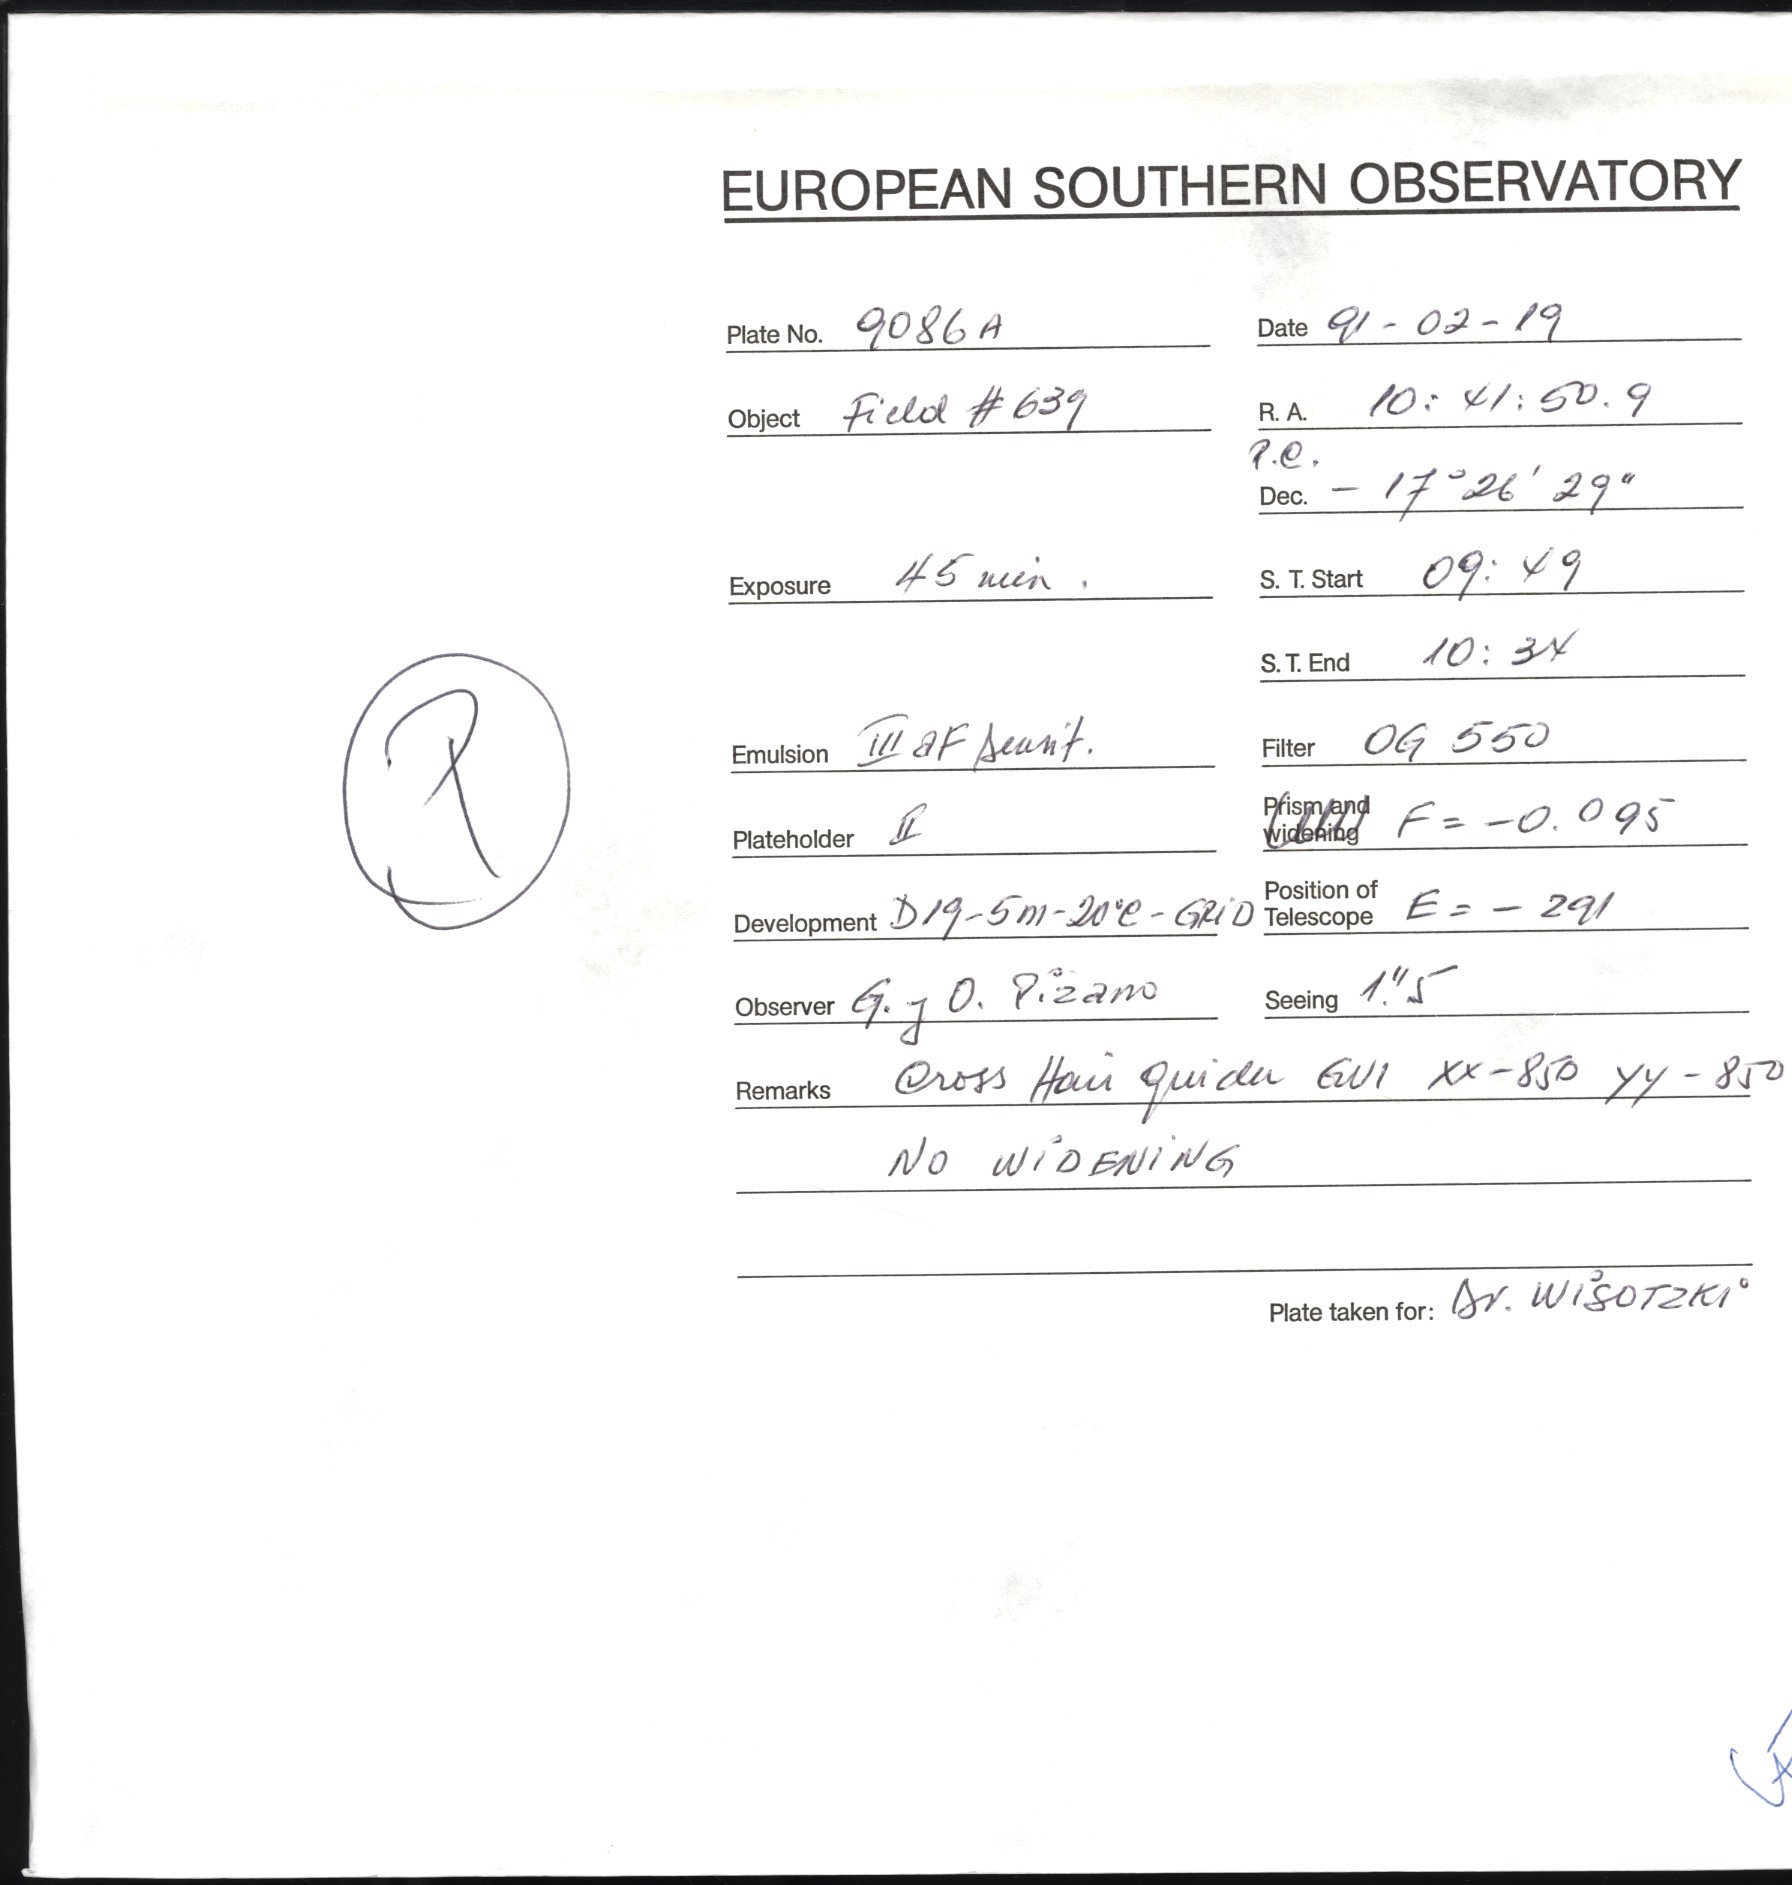 EUROPEAN SOUTHERN OBSERVATORY
Plate No. 9086 A
Date 91-02-19
Object Field # 639
R. A. 10: 41: 50. 9
P.C.
Dec. - 17° 26' 29"
Exposure 45 min.
S. T. Start 09: 49
S. T. End 10: 34
Emulsion III aF sensit.
Filter OG 550
Plateholder II
Prism and widening F = -0. 095
Development D19-5m-20°C-GRiD
Position of Telescope E = - 291
Observer G. y O. Pizarro
Seeing 1."5
Remarks Cross Hair guider GUI XX-850 YY-850
NO WiDENiNG
Plate taken for: Dr. WISOTZKI
R